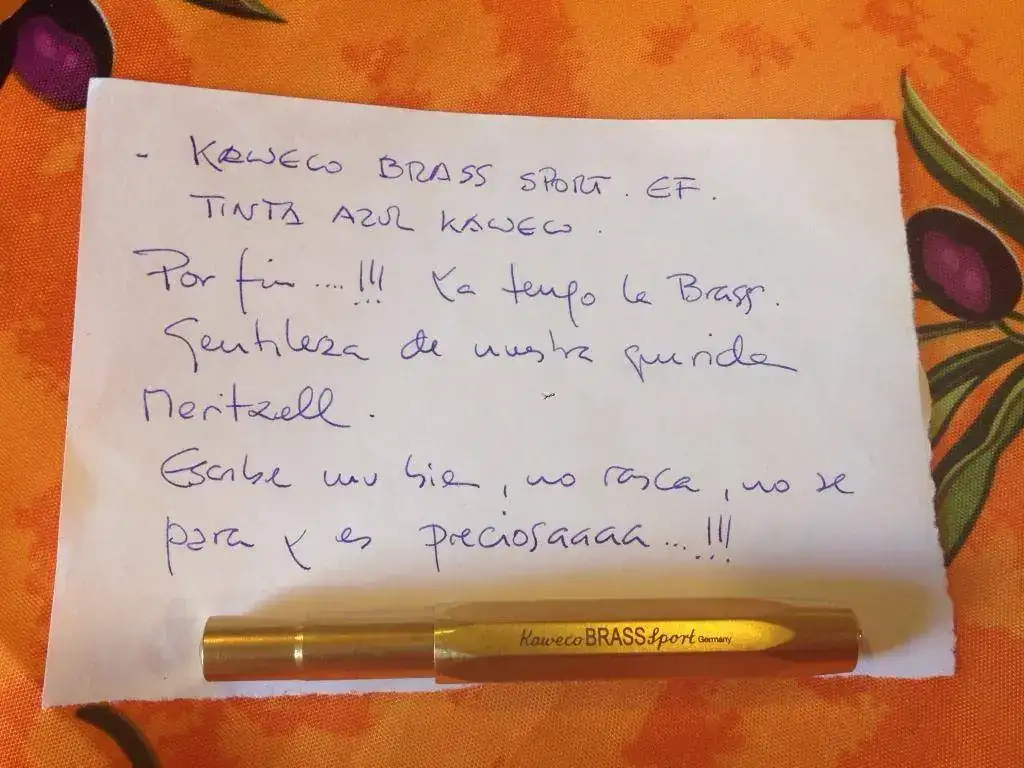 - KAWECO BRASS SPORT. EF.
TINTA AZUL KAWECO.
Por fin....!!! Ya tengo la Brass.
Gentileza de nuestra querida
Meritzell.
Escribe muy bien, no rasca, no se
para y es preciosaaaa...!!!
Kaweco BRASS Sport Germany